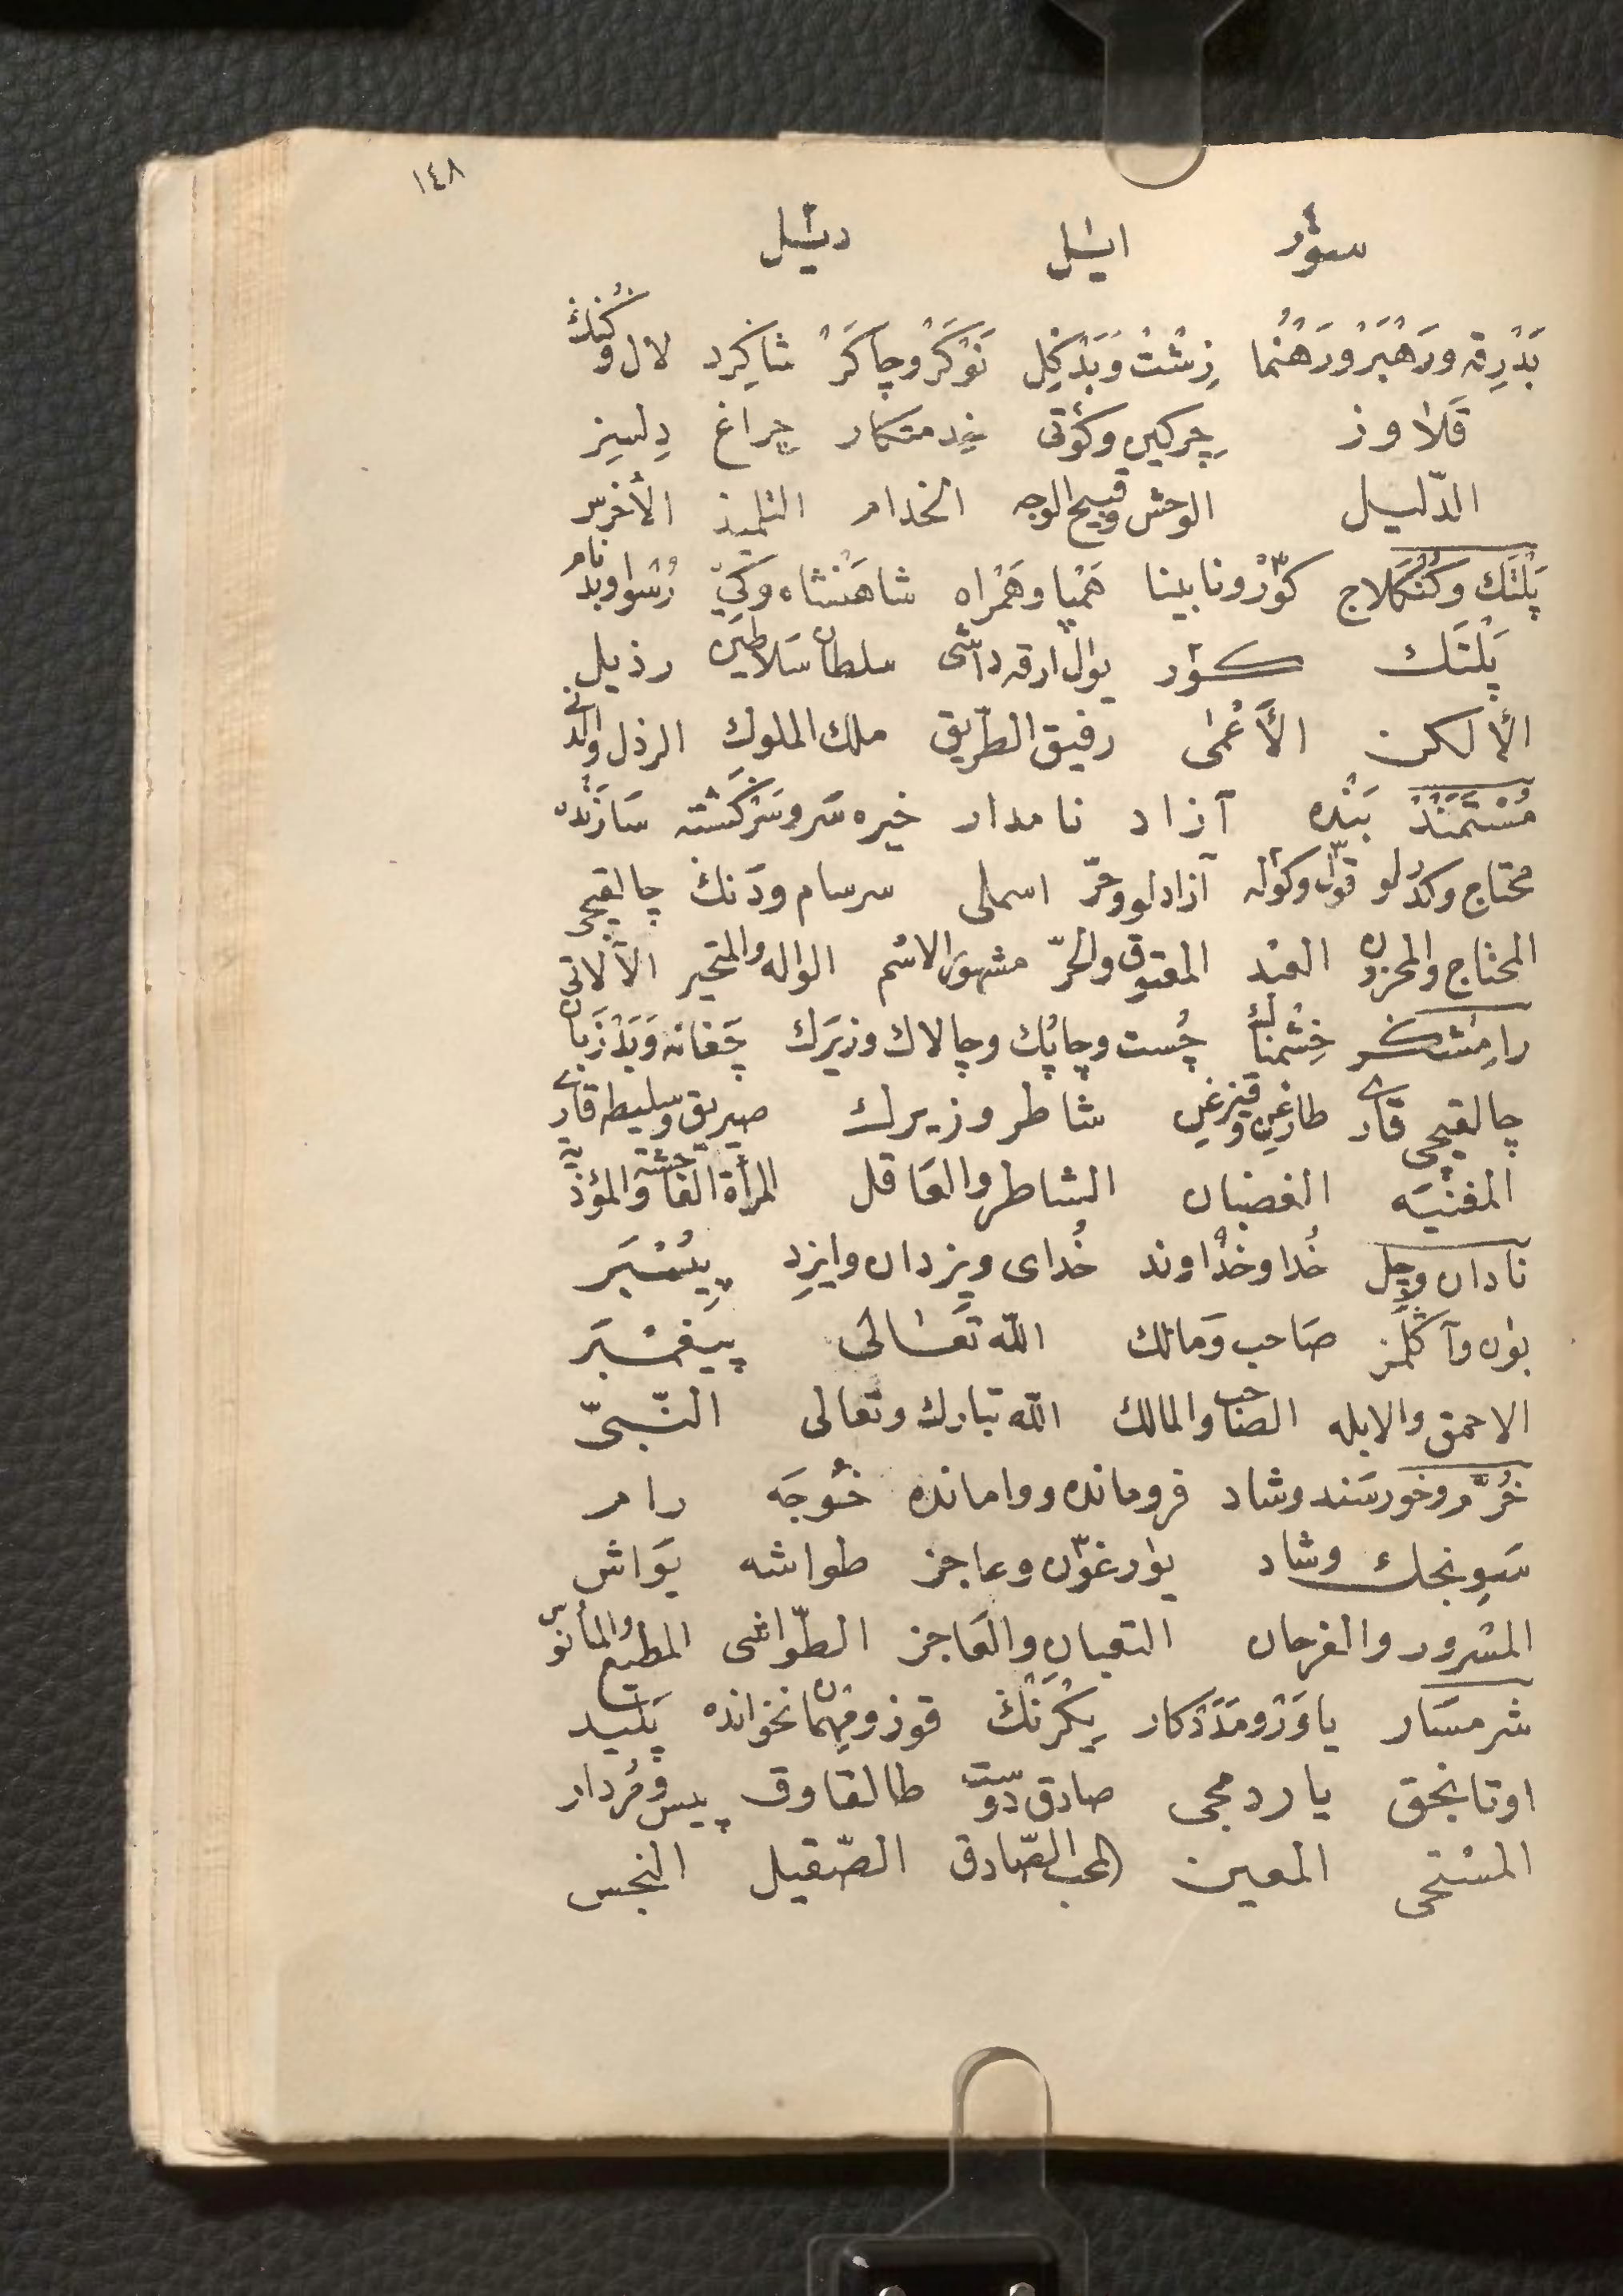 ١٤٨
سؤر ايشل ديشل
بَدْرِقه ورَهْبَرْ ورَهْنُما زِشْتْ وَبَدْكِل نَوْكَرْ وچاكَرْ شاكِرد لال وكُنك
قَلاوز چركين وكوتى خدمتكار چراغ دلسيز
الدّليل الوحش وقبيح الوجه الخدام التلميذ الأخرس
پَلْتَك وكُنْكَلاج كوْرْ ونابينا هَمْپا وهَمْراه شاهَنْشاه وكَىْ رُسْوا وبَدْ نام
پَلْتَك كور يول ارقه داشى سلطان سَلاطين رذيل
الألكن الأعْمٰى رفيق الطريق ملك الملوك الرذل والدنى
مُسْتَمَنْدْ بَنْده آزاد نامدار خيره سَر وسَرْكَشته سَازَنْده
محتاج وكدرلو قول وكوله آزادلو وحرّ اسملى سرسام ودَنك چالقيجى
المحتاج والمحزون العبد المعتوق والحرّ مشهور الاسْم الواله والمتحير الآلاتى
رامِشْكر خِشْمناك چُست وچاپُك وچالاك وزيرَك چَغانه وَبَدْزَبان
چالقيجى قارى طارغين وقيزغين شاطر وزيرك صيريق وسليطه قارى
المغنيّه الغضبان الشاطر والعَاقل المرأة الفاحشة والمؤذية
نادان وچل خُدا وخُداوند خُداى ويزدان وايزِد پيُمْبَر
بون وآكلَمز صَاحب وَمالك اللّه تَعَالى پيغمْبَر
الاحمق والابله الصاحب والمالك اللّه تبارك وتعالى النّبىّ
خُرَّم وخورسَند وشاد فرومانده ووامانده خُوجَه رام
سَوِنجك وشاد يورغون وعاجز طواشه يَواش
المسْرور والفرحان التعبان والعَاجز الطّواشى المطيع والمأنوس
شرمسَار ياوَرْ ومَدَدْكار يِكْرَنْكْ قوز ومِهمان نخوانده پَليد
اوتانجق ياردمجى صادق دوست طالقاوق پيس ومُردار
المسْتحى المعين المحب الصّادق الثّقيل النجس